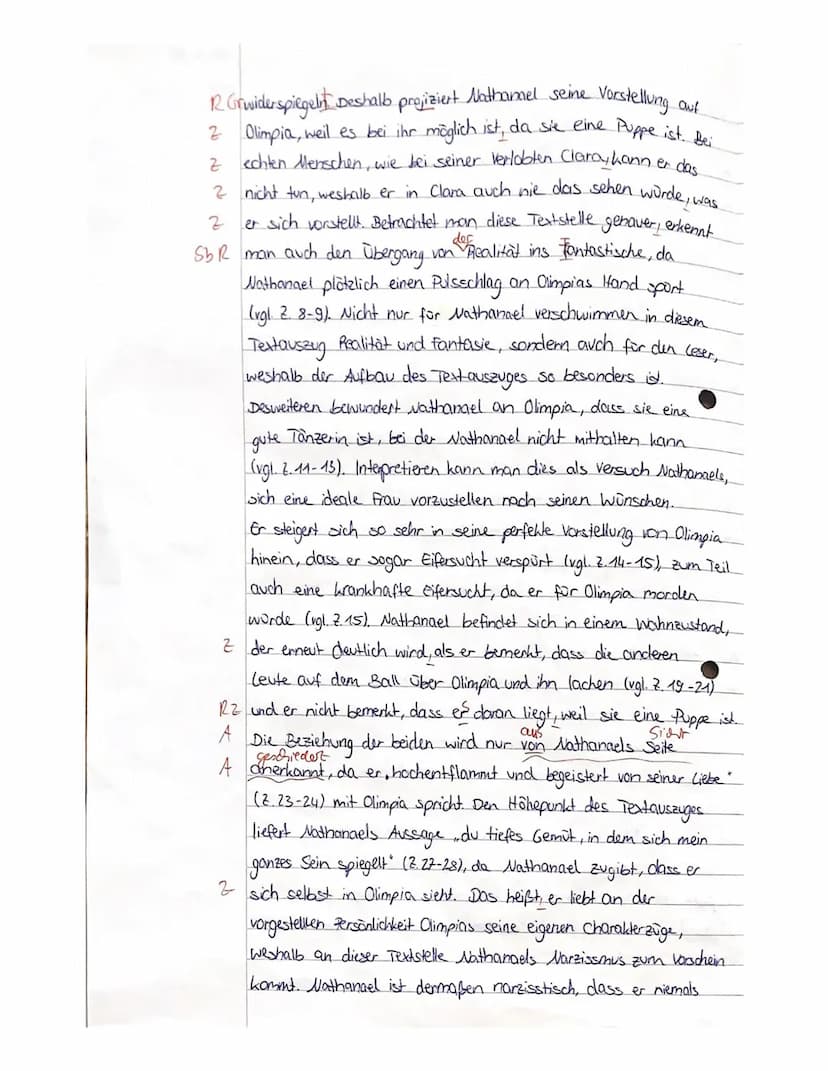 R Gr widerspiegelt. Deshalb projiziert Nathanael seine Vorstellung auf
Z Olimpia, weil es bei ihr möglich ist, da sie eine Puppe ist. Bei
Z echten Menschen, wie bei seiner Verlobten Clara, kann er das
Z nicht tun, weshalb er in Clara auch nie das sehen würde, was
Z er sich vorstellt. Betrachtet man diese Textstelle genauer, erkennt
Sb R man auch den Übergang von der Realität ins Fantastische, da
Nathanael plötzlich einen Pulsschlag an Olimpias Hand spürt
(vgl. Z. 8-9). Nicht nur für Nathanael verschwimmen in diesem
Textauszug Realität und Fantasie, sondern auch für den Leser,
weshalb der Aufbau des Textauszuges so besonders ist.
Desweiteren bewundert Nathanael an Olimpia, dass sie eine
gute Tänzerin ist, bei der Nathanael nicht mithalten kann
(vgl. Z. 11-13). Intepretieren kann man dies als Versuch Nathanaels,
sich eine ideale Frau vorzustellen nach seinen Wünschen.
Er steigert sich so sehr in seine perfekte Vorstellung von Olimpia
hinein, dass er sogar Eifersucht verspürt (vgl. Z. 14-15), zum Teil
auch eine krankhafte Eifersucht, da er für Olimpia morden
würde (vgl. Z. 15). Nathanael befindet sich in einem Wahnzustand,
Z der erneut deutlich wird, als er bemerkt, dass die anderen
Leute auf dem Ball über Olimpia und ihn lachen (vgl. Z. 19-21)
R Z und er nicht bemerkt, dass es daran liegt, weil sie eine Puppe ist.
aus Sicht
A Die Beziehung der beiden wird nur von Nathanaels Seite
geschiedert
A anerkannt, da er „hochentflammt und begeistert von seiner Liebe"
(Z. 23-24) mit Olimpia spricht. Den Höhepunkt des Textauszuges
liefert Nathanaels Aussage „du tiefes Gemüt, in dem sich mein
ganzes Sein spiegelt" (Z. 27-28), da Nathanael zugibt, dass er
Z sich selbst in Olimpia sieht. Das heißt, er liebt an der
vorgestellten Persönlichkeit Olimpias seine eigenen Charakterzüge,
weshalb an dieser Textstelle Nathanaels Narzissmus zum Vorschein
kommt. Nathanael ist dermaßen narzisstisch, dass er niemals